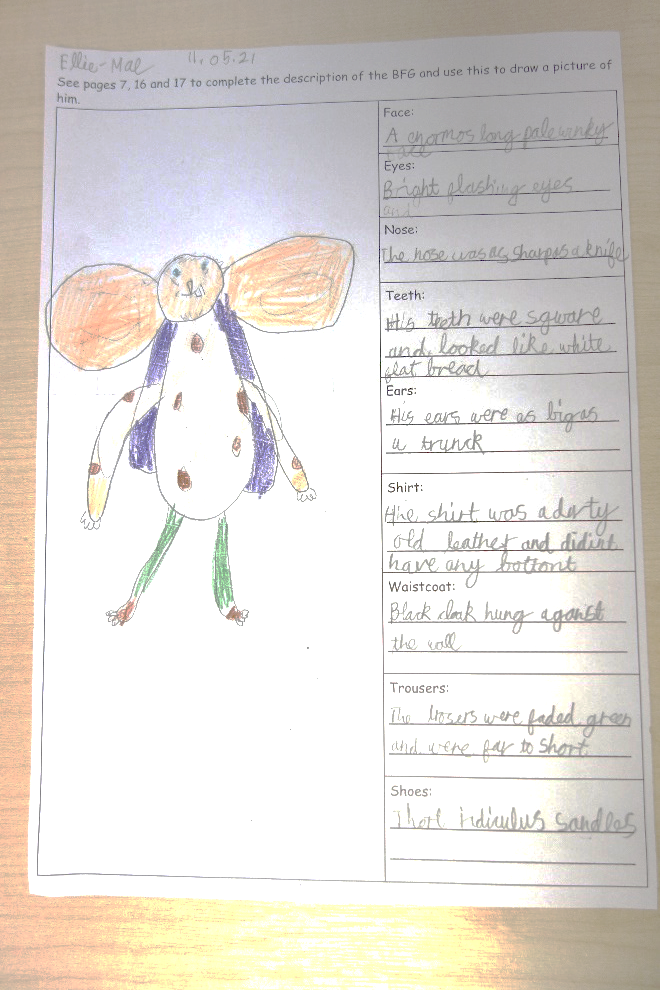 Ellie-Mae 11.05.21
See pages 7, 16 and 17 to complete the description of the BFG and use this to draw a picture of
him.
Face:
A enormos long pale wrinky
face
Eyes:
Bright flashing eyes
and
Nose:
The nose was as sharp as a knife
Teeth:
His teeth were sqware
and looked like white
flat bread
Ears:
His ears were as big as
a trunck
Shirt:
shirt was a dirty
old leather and didint
have any bottont
Waistcoat:
Black cloak hung aganst
the wall
Trousers:
The trosers were faded green
and were far to short
Shoes:
ridiculus sandles